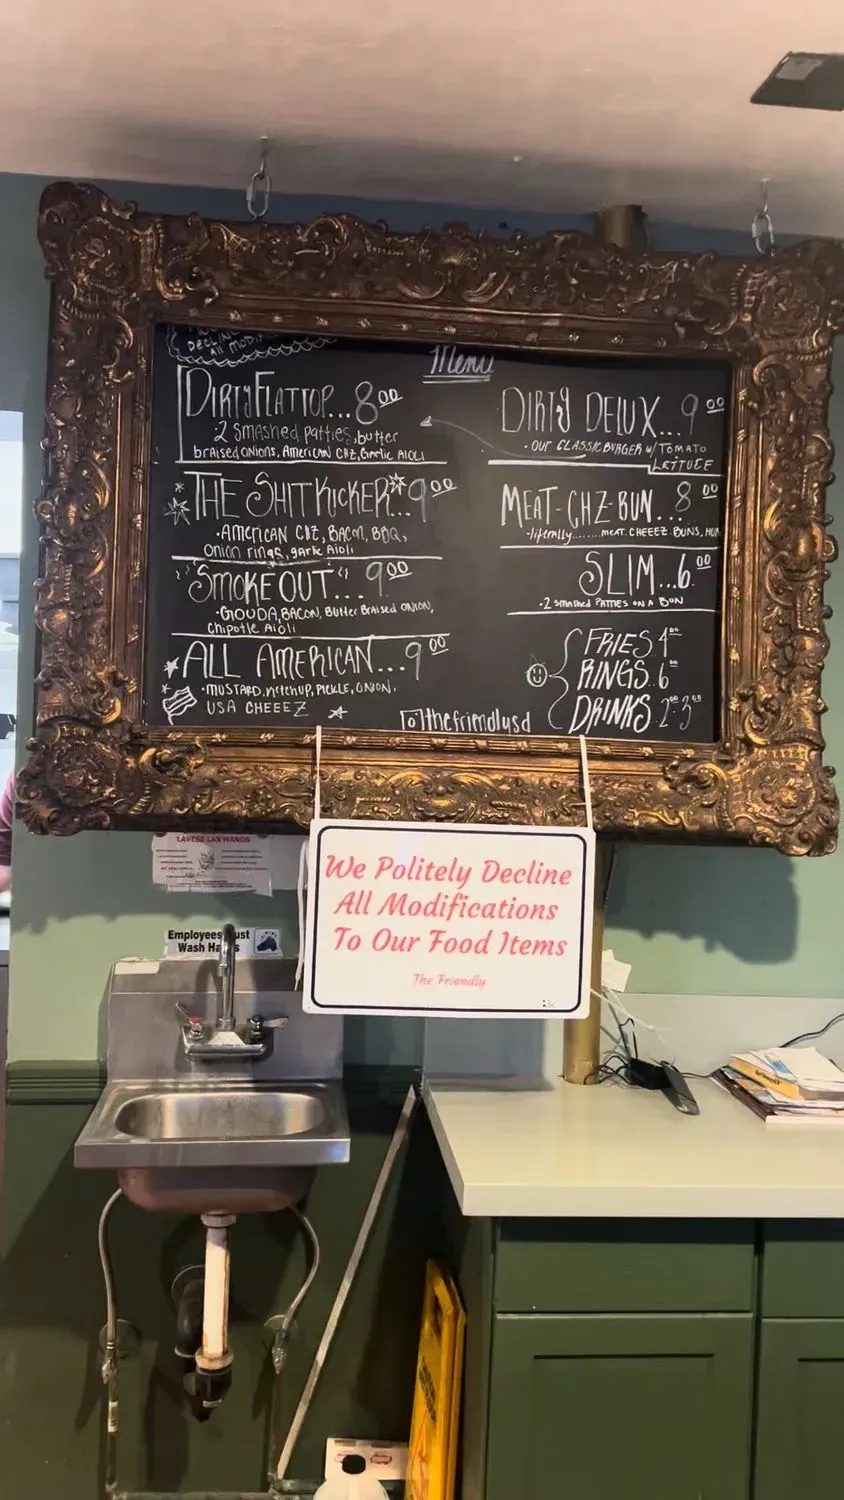 DECLINE
ALL MODIFI
Menu
DIRTY FLATTOP... 8 00
2 Smashed patties, butter
braised onions, AMERICAN CHZ, Garlic AIOLI
THE SHITKICKER... 9 00
• AMERICAN CHZ, BACON, BBQ,
Onion rings, garlic Aioli
"SMOKE OUT"... 9 00
• GOUDA, BACON, Butter Braised ONION,
Chipotle Aioli
ALL AMERICAN... 9 00
• MUSTARD, KETCHUP, PICKLE, ONION,
USA CHEEEZ
DIRTY DELUX... 9 00
• OUR CLASSIC BURGER w/ TOMATO
LETTUCE
MEAT-CHZ-BUN... 8 00
• literally....... MEAT. CHEEEZ. BUNS,
SLIM... 6 00
• 2 smashed PATTIES ON A BUN
FRIES. 4 00
RINGS. 6 00
DRINKS. 2 00 - 3 00
thefriendlysd
LAVESE LAS MANOS
Employees Must
Wash Hands
We Politely Decline
All Modifications
To Our Food Items
The Friendly